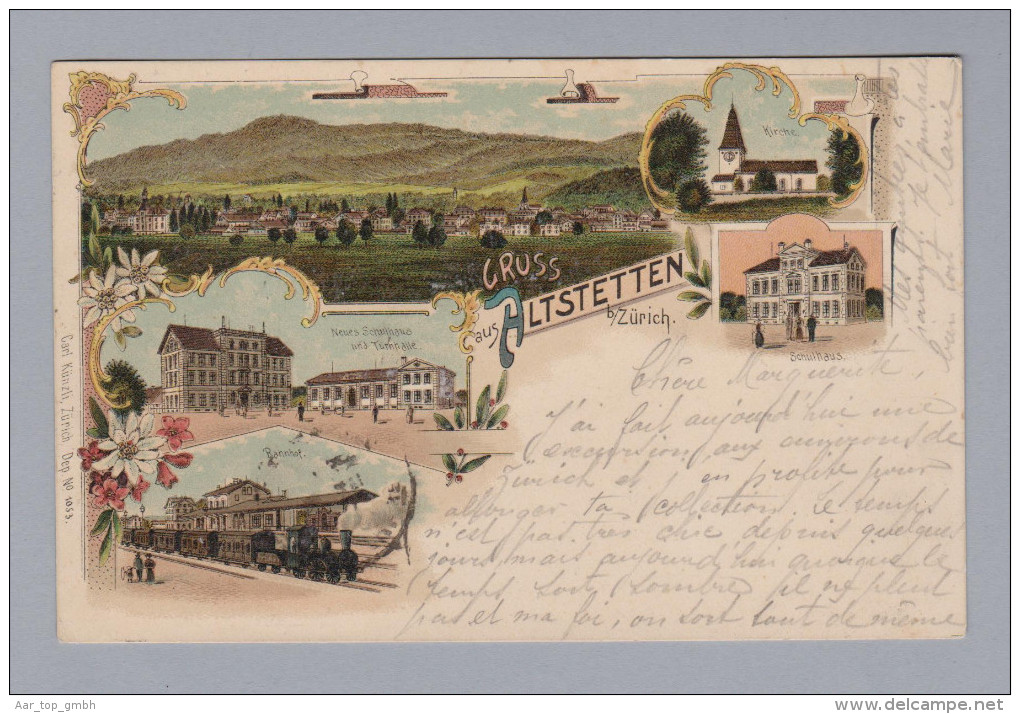 Kirche.
GRUSS
aus ALTSTETTEN
b/Zürich.
Schulhaus.
Neues Schulhaus
und Turnhalle.
Bahnhof.
Carl Künzli, Zürich Dep No 1053.
Chère Marguerite,
J'ai fait aujourd'hui une
excursion aux environs de
Zürich et en profite pour
ta collection. Le temps
n'est pas très chic depuis quelques
jours, mais aujourd'hui quoique le
temps soit sombre il ne pleut
pas et ma foi, on sort tout de même
Marie
Aar_top_gmbh
delcampe.net